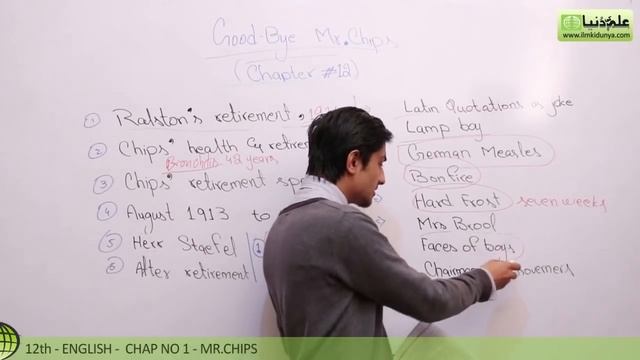 علم دنیا
www.ilmkidunya.com
Good-Bye Mr. Chips
(Chapter #12)
① Ralston's retirement,
② Chips' health & retire
Bronchitis 48 years
③ Chips' retirement
④ August 1913 to
⑤ Herr Staefel
⑥ After retirement
Latin Quotations as joke
Lamp boy
German Measles
Bonfire
Hard Frost seven weeks
Mrs Brool
Faces of boys
Chairma overners
12th - ENGLISH - CHAP NO 1 - MR.CHIPS